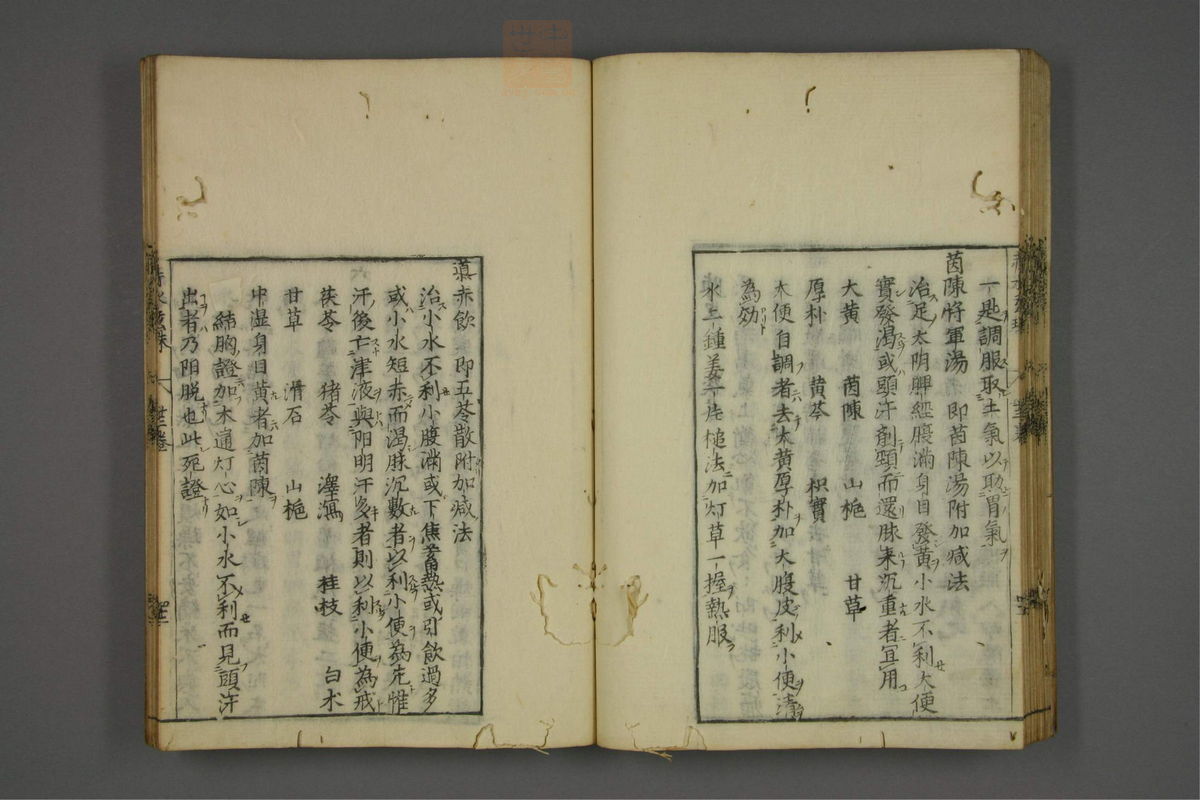 一匙調服取土氣以助胃氣
茵陳將軍湯 即茵陳湯附加減法
治足太阴脾經腹滿身目發黃小水不利大便
實發渴或頭汗劑頸而還脉来沉重者宜用
大黄 茵陳 山梔 甘草
厚朴 黄芩 枳實
大便自調者去大黄厚朴加大腹皮利小便清
為効
水二鍾姜一片槌法加灯草一握熱服
赤水玄珠
䕶赤飲 即五苓散附加減法
治小水不利小腹滿或下焦蓄熱或引飲過多
或小水短赤而渴脉沉數者以利小便為先惟
汗後亡津液與阳明汗多者則以利小便為戒
茯苓 猪苓 澤瀉 桂枝 白术
甘草 滑石 山梔
中湿身目黄者加茵陳
結胸證加木通灯心如小水不利而見頭汗
出者乃阳脱也此死證